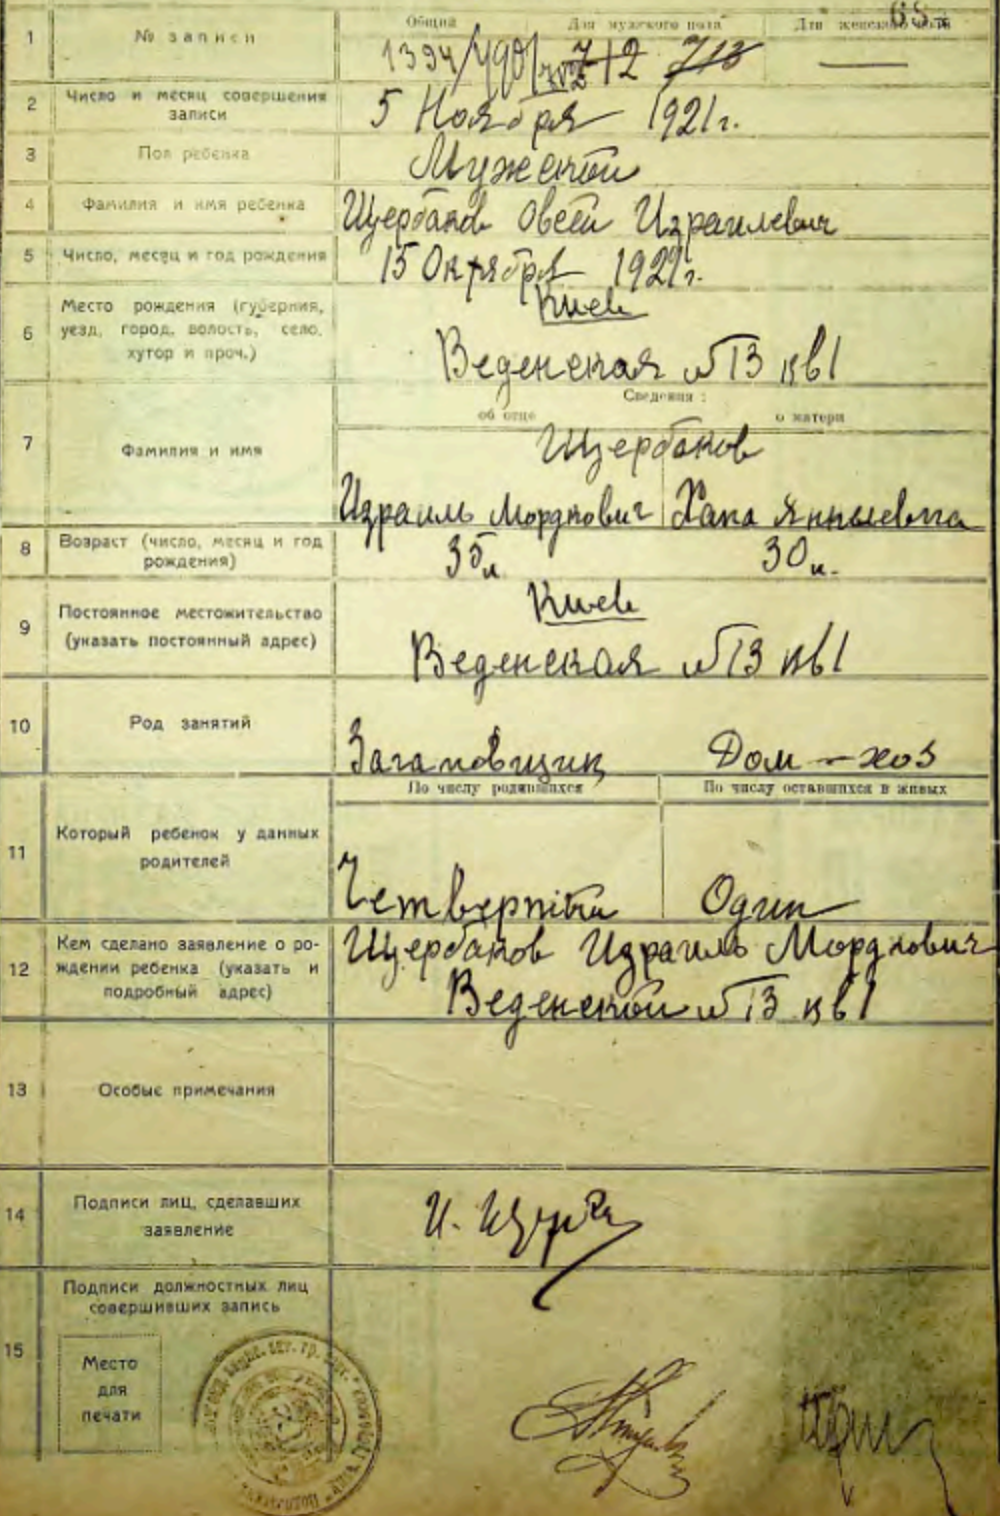 Общий Для мужского пола Для женского пола
1 № записи 1394/490 712 713
2 Число и месяц совершения записи 5 Ноября 1921г.
3 Пол ребенка Мужской
4 Фамилия и имя ребенка Щербаков Овсей Израилевич
5 Число, месяц и год рождения 15 Октября 1921г.
Киев
6 Место рождения (губерния,
уезд, город, волость, село,
хутор и проч.)
Веденская №13 кв1
Сведения:
об отце о матери
7 Фамилия и имя Щербаков
Израиль Мордкович Хана
8 Возраст (число, месяц и год
рождения) 35л 30л.
Киев
9 Постоянное местожительство
(указать постоянный адрес)
Веденская №13 кв1
10 Род занятий
Загатовщик Дом-хоз
По числу родившихся По числу оставшихся в живых
11 Который ребенок у данных
родителей
Четверитый Один
12 Кем сделано заявление о ро-
ждении ребенка (указать и
подробный адрес)
Щербаков Израиль Мордкович
Веденской №13 кв1
13 Особые примечания
14 Подписи лиц, сделавших
заявление
И. Щерба
Подписи должностных лиц
совершивших запись
15 Место
для
печати